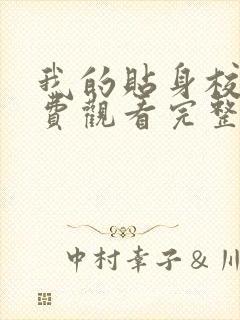 我的貼身校
費觀看完整
中村幸子&川